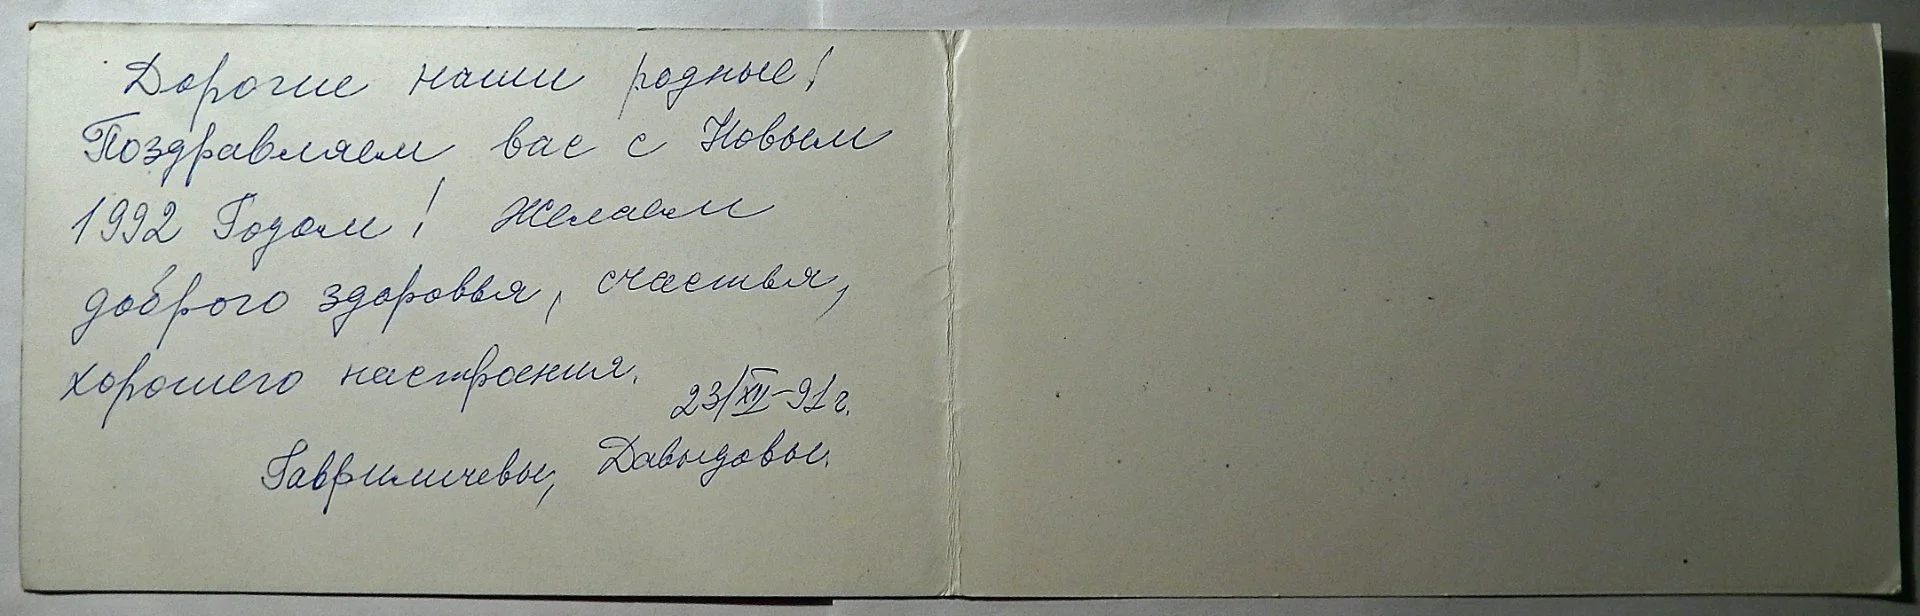 Дорогие наши родные!
Поздравляем вас с Новым
1992 Годом! Желаем
доброго здоровья, счастья,
хорошего настроения.
23/XII-91г.
Гавриличевы, Давыдовы.